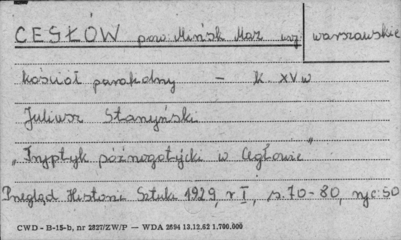 CEGŁÓW pow. Mińsk Maz. woj. warszawskie
kościół parafialny - k. XV w
Juliusz Starzyński
„Tryptyk późnogotycki w Cegłowie"
Przegląd Historii Sztuki 1929, r I, s. 70-80, ryc: 50
CWD - B-15-b, nr 2827/ZW/P — WDA 2694 13.12.62 1.700.000